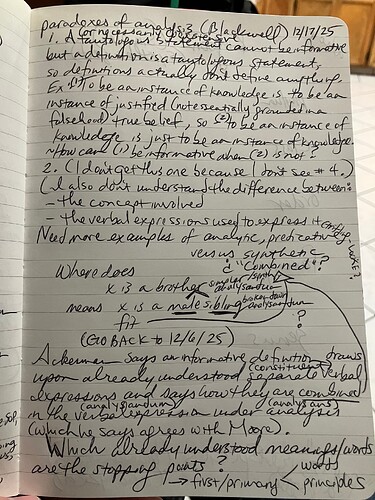 paradoxes of analysis (Blackwell) 12/17/25
(or necessarily
1. A tautologous statement cannot be informative
but a definition is a tautologous statement,
so definitions actually don't define anything.
Ex (1) To be an instance of knowledge is to be an
instance of justified (not essentially grounded in a
falsehood) true belief, so (2) to be an instance of
knowledge is just to be an instance of knowledge.
How can (1) be informative when (2) is not?
2. (I don't get this one because I don't see #4.)
(I also don't understand the difference between:
- the concept involved
- the verbal expressions used to express it
Need more examples of analytic, predicative
versus synthetic
& "combined"?
Where does
x is a brother
means x is a male sibling
fit ?
(GO BACK to 12/6/25)
Ackerman says an informative definition draws
(constituent)
upon already understood separate verbal
expressions and says how they are combined
(analysandum) (analysans)
in the verbal expression under analysis
(which he says agrees with Moore).
Which already understood meanings/words
are the stopping points?
words
→ first/primary < principles